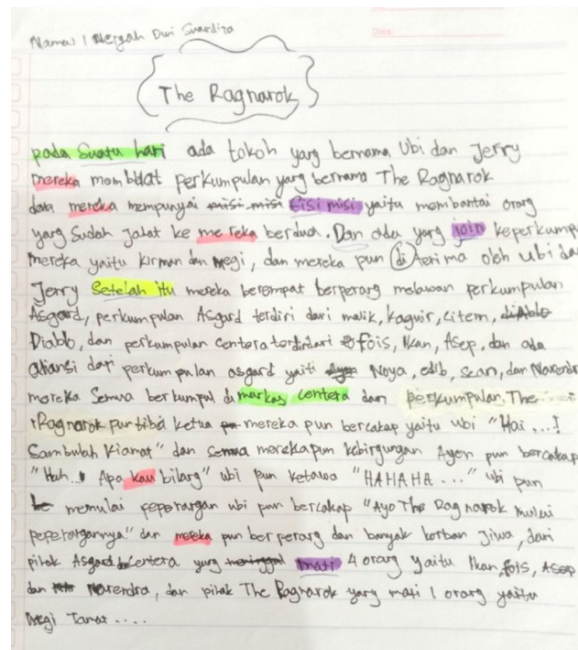 Nama: I Nengah Dwi Suardita
The Ragnarok
pada Suatu hari ada tokoh yang bernama Ubi dan Jerry
mereka membuat perkumpulan yang bernama The Ragnarok
dan mereka mempunyai misi-misi fisi misi yaitu membantai orang
yang Sudah jahat ke mereka berdua. Dan ada yang join keperkump
mereka yaitu kirman dan megi, dan mereka pun di terima oleh ubi da
Jerry Setelah itu mereka berempat berperang melawan perkumpulan
Asgard, perkumpulan Asgard terdiri dari malik, kaguir, citem,
Diablo, dan perkumpulan centera terdiri dari fois, Ikan, Asep, dan ada
aliansi dari perkumpulan asgard yaiti Noya, edib, sean, dan Narendr
mereka Semua berkumpul di markas centera dan perkumpulan The
Ragnarok pun tiba ketua mereka pun bercakap yaitu ubi "Hai ...!
Sambulah kiamat" dan semua mereka pun kebingungan Ayen pun bercakap
"Hah... Apa kau bilang" ubi pun ketawa "HAHAHA ..." ubi pun
memulai peperangan ubi pun bercakap "Ayo The Ragnarok mulai
peperangannya" dan mereka pun berperang dan banyak korban jiwa, dari
pihak Asgard centera yang mati 4 orang yaitu Ikan, fois, Asep
dan Narendra, dan pihak The Ragnarok yang mati 1 orang yaitu
Megi Tamat ....